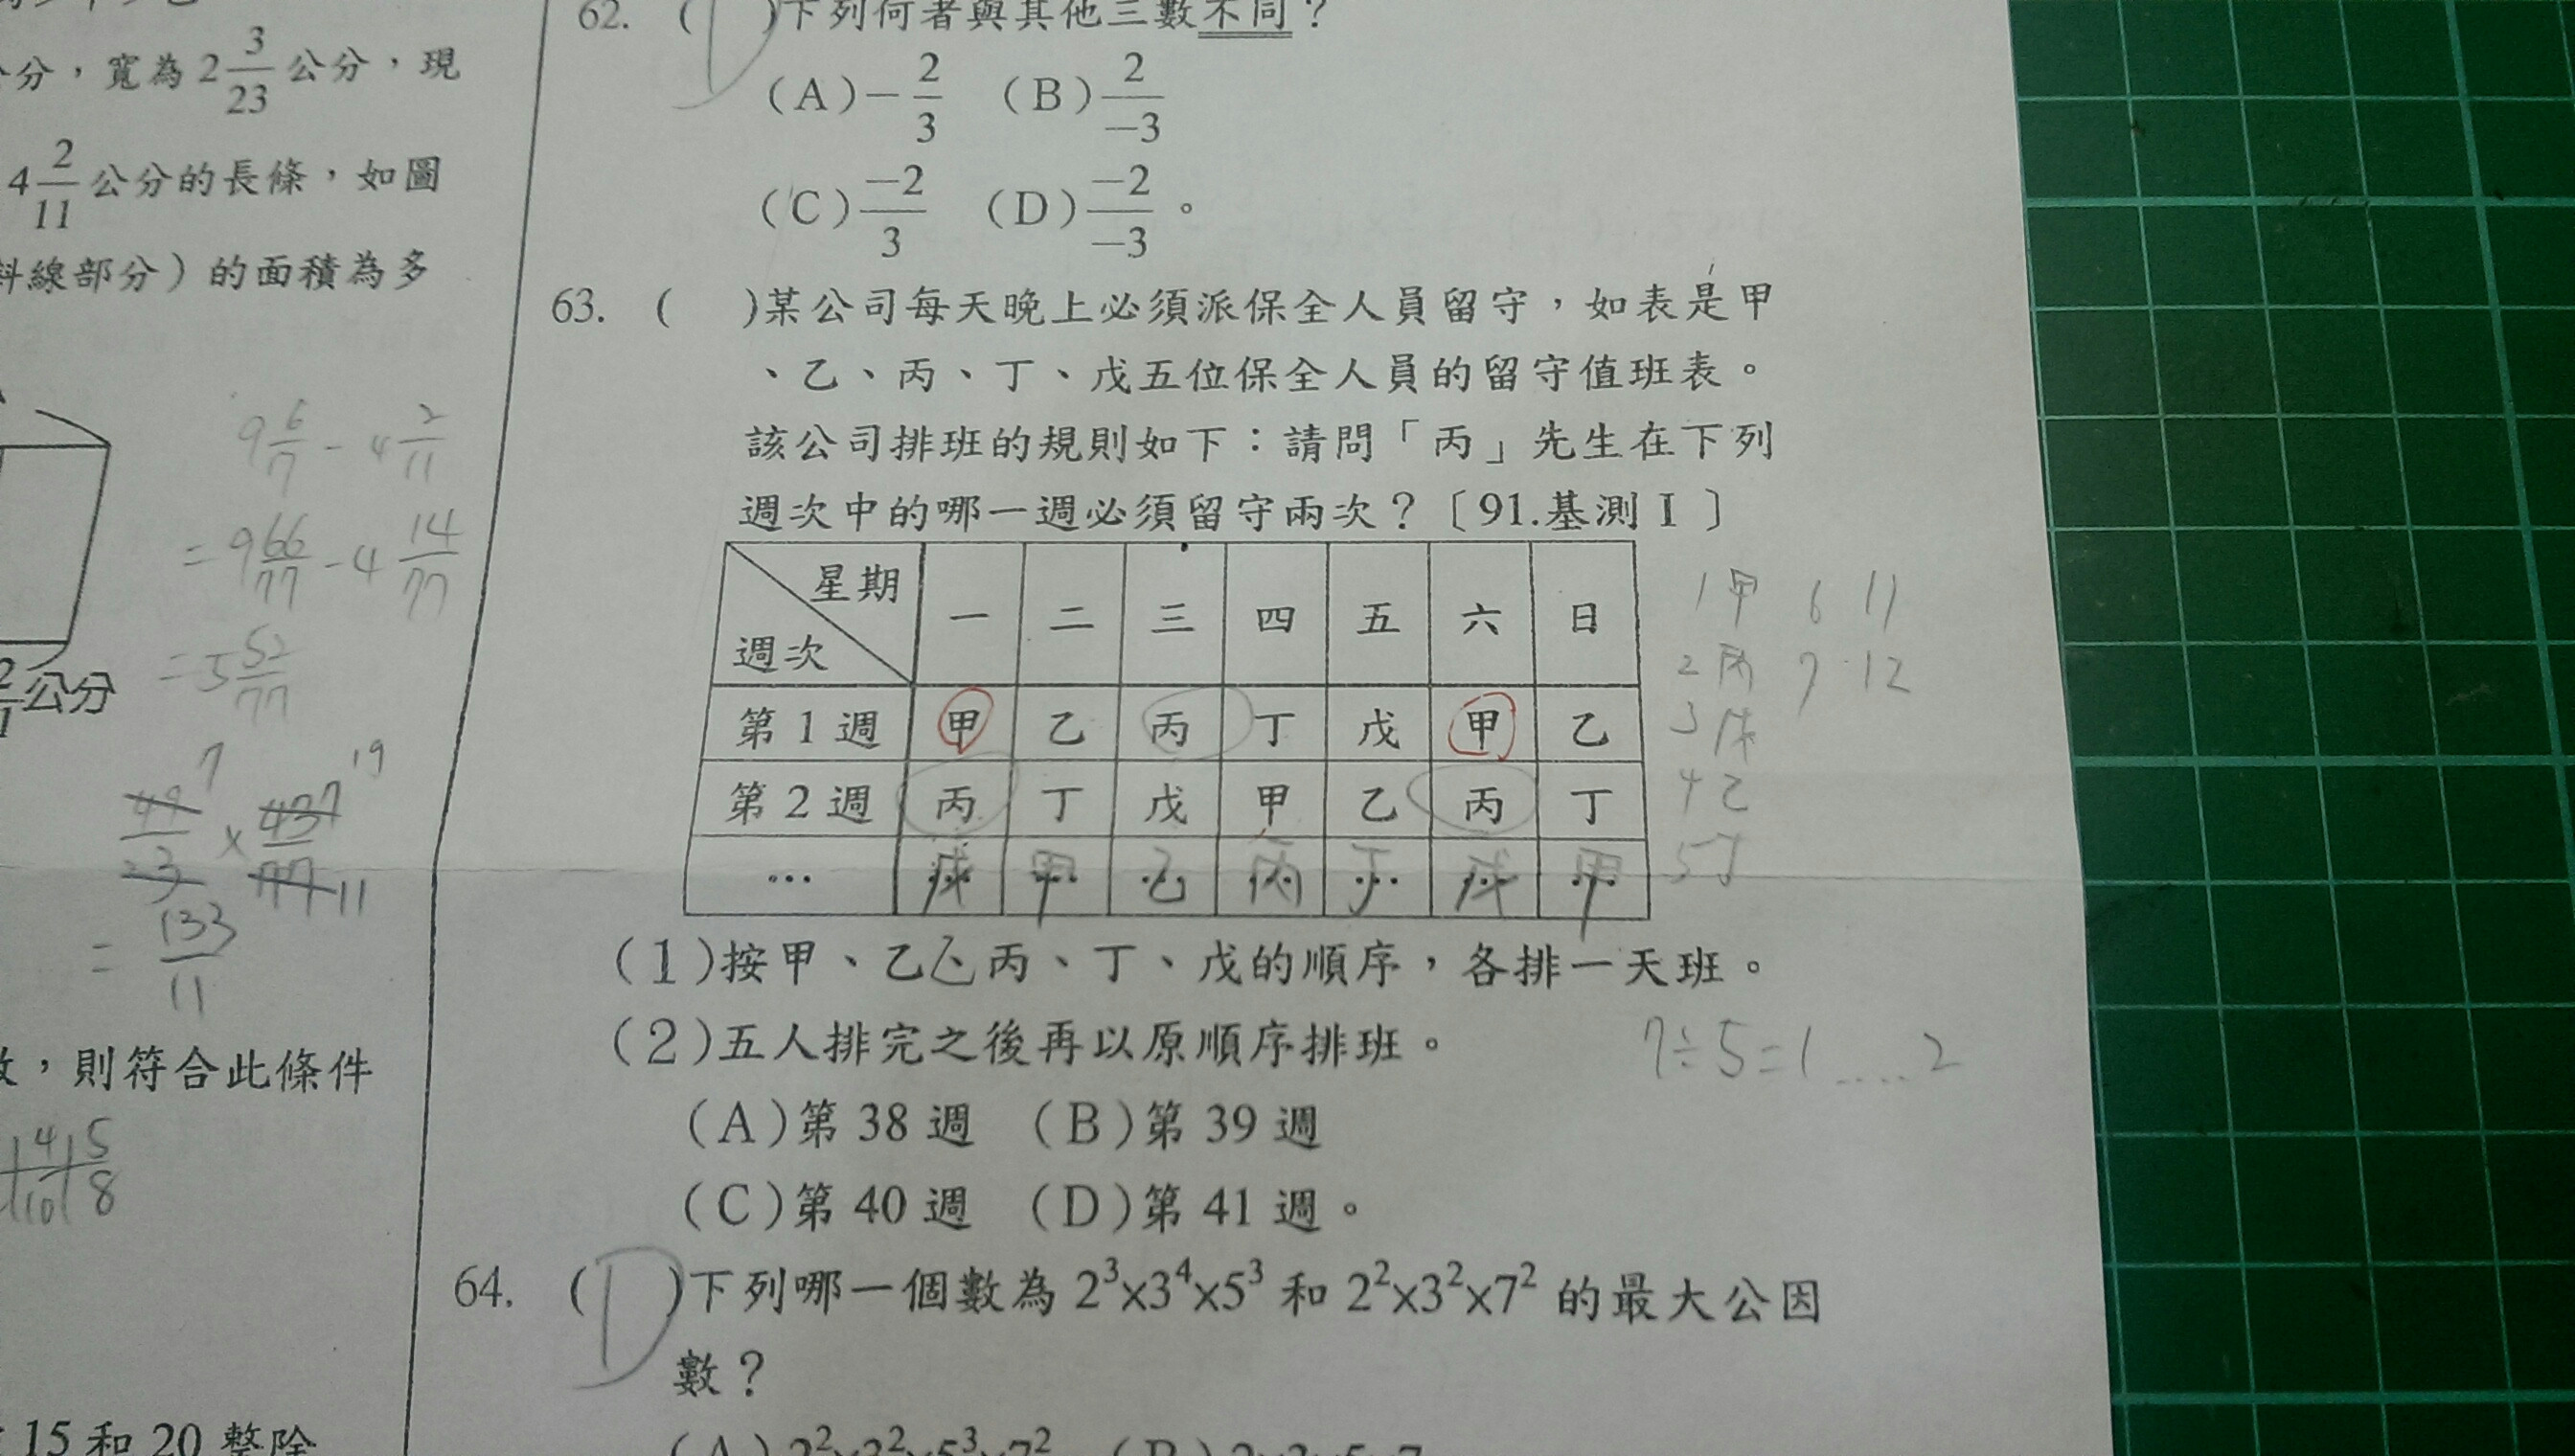 分，寬為 2 3/23 公分，現
4 2/11 公分的長條，如圖
斜線部分）的面積為多
9 6/7 - 4 2/11
= 9 66/77 - 4 14/77
= 5 52/77
公分
49/23 × 437/77
7 19
11
= 133/11
，則符合此條件
4 5
10 8
15 和 20 整除
62. ( D )下列何者與其他三數不同？
(A) -2/3 (B) 2/-3
(C) -2/3 (D) -2/-3 。
63. ( )某公司每天晚上必須派保全人員留守，如表是甲
、乙、丙、丁、戊五位保全人員的留守值班表。
該公司排班的規則如下：請問「丙」先生在下列
週次中的哪一週必須留守兩次？〔91.基測Ⅰ〕
星期 一 二 三 四 五 六 日
週次
第 1 週 甲 乙 丙 丁 戊 甲 乙
第 2 週 丙 丁 戊 甲 乙 丙 丁
… 戊 甲 乙 丙 丁 戊 甲
1 甲 6 11
2 丙 7 12
3 戊
4 乙
5 丁
(1)按甲、乙、丙、丁、戊的順序，各排一天班。
(2)五人排完之後再以原順序排班。
7÷5=1....2
(A)第 38 週 (B)第 39 週
(C)第 40 週 (D)第 41 週。
64. ( D )下列哪一個數為 2³×3⁴×5³ 和 2²×3²×7² 的最大公因
數？
(A) 2²×3²×5³×7² (B) 2×3×5×7